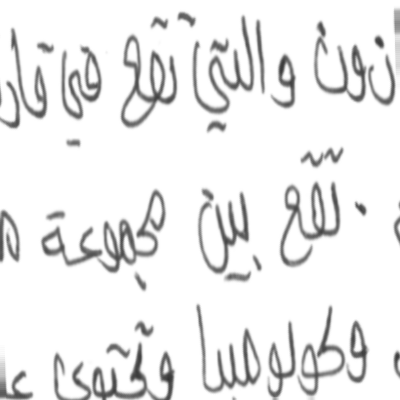 زون والتي تقع في قار
. تقع بين مجموعة
وكولومبيا وتحتوى عل